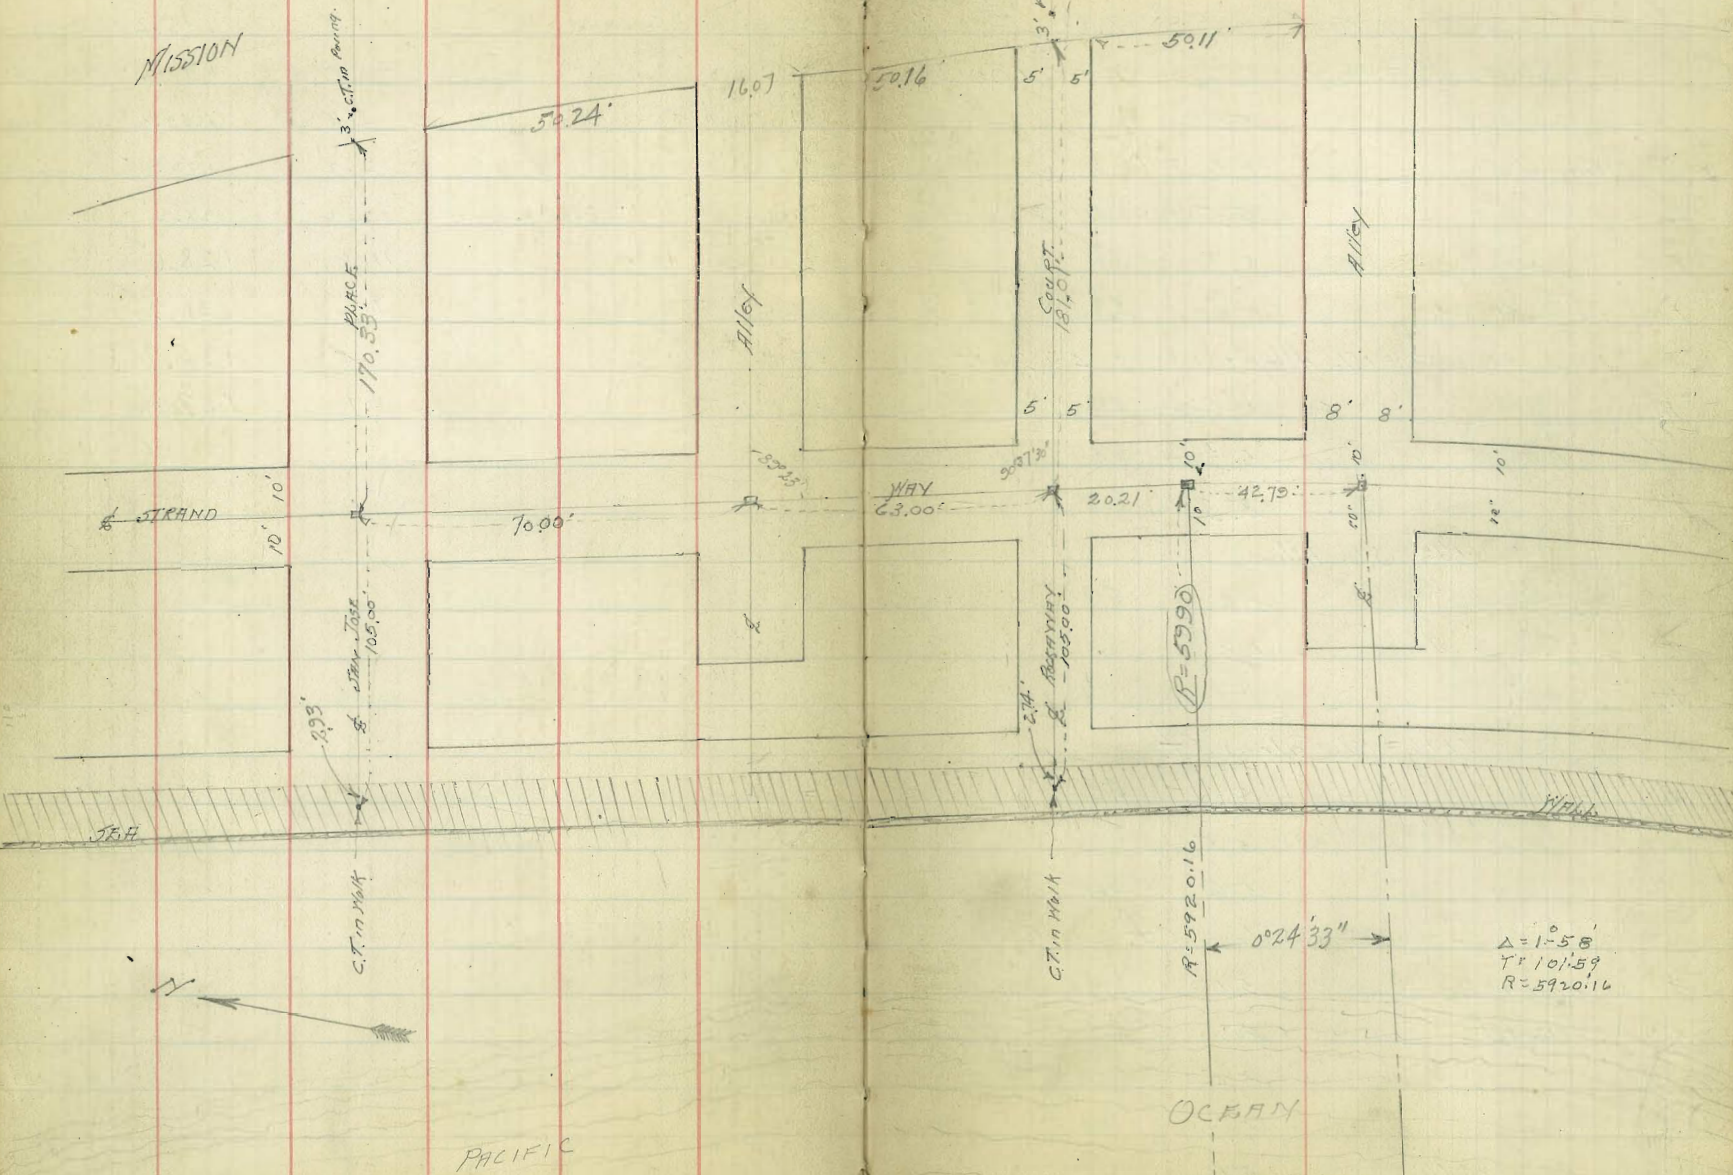 MISSION
3' x C.T. in Paving.
3'
50.24'
16.07
50.16'
5' 5'
50.11'
PLACE
170.33'
Alley
COURT
181.01'
Alley
5' 5'
8' 8'
10'
10'
10'
10'
10'
10'
10'
℄ STRAND
WAY
70.00'
63.00'
20.21'
42.79'
℄ SAN JOSE
105.00'
℄
℄ ROCKAWAY
105.00'
R=5990
℄
2.93'
2.74'
SEA
WALL
C.T. in Walk
C.T. in Walk
R=5920.16
0°24'33"
Δ=1°-58'
T=101.59
R=5920.16
N
PACIFIC
OCEAN